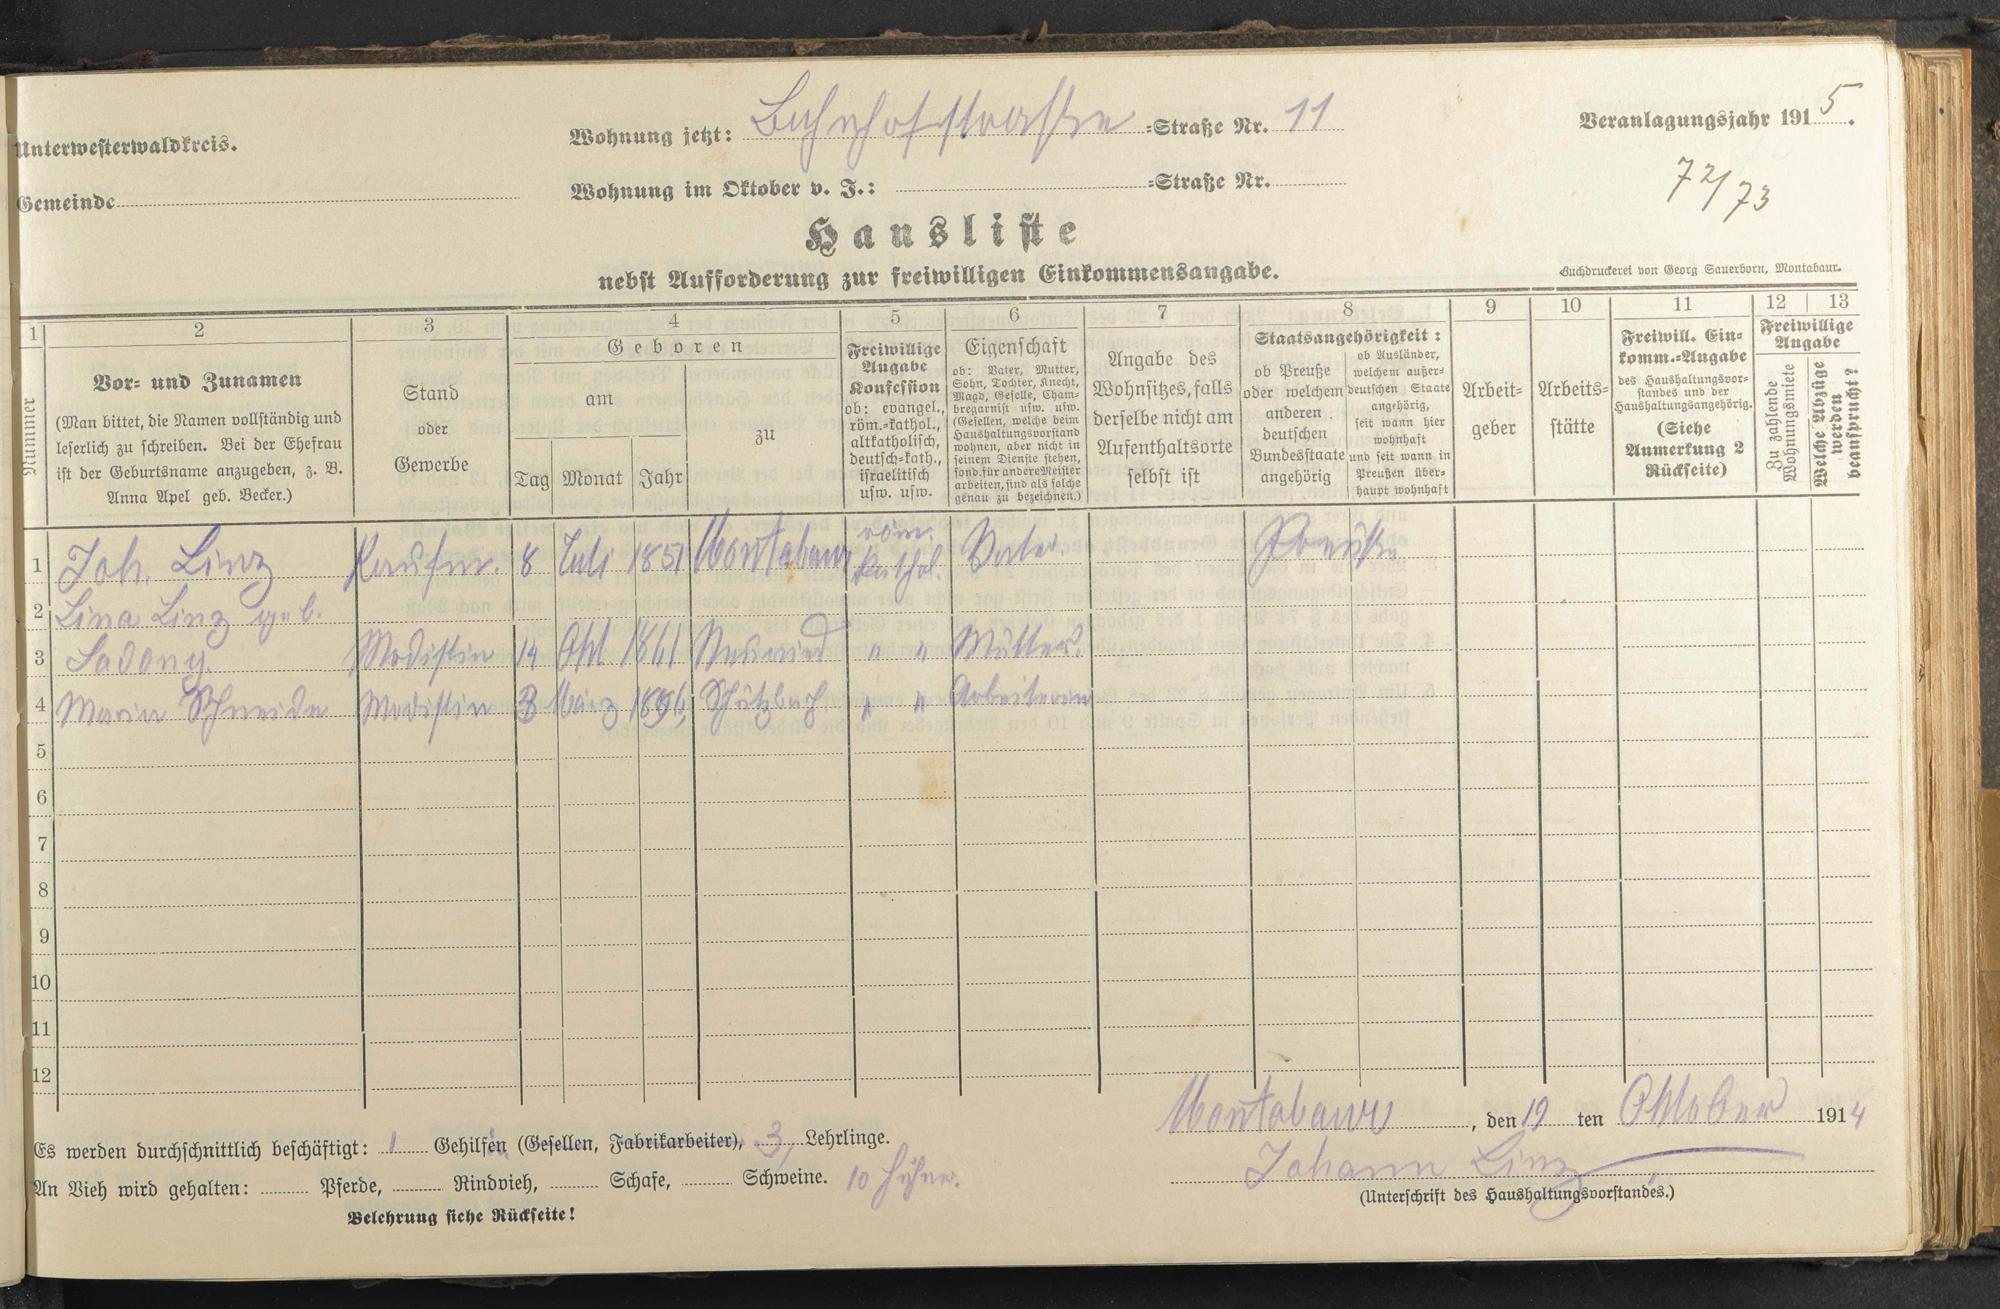 Unterwesterwaldkreis.
Wohnung jetzt: Bahnhofstrasse =Straße Nr. 11
Veranlagungsjahr 1915.
Gemeinde
Wohnung im Oktober v. J.: =Straße Nr.
72/73
Hausliste
nebst Aufforderung zur freiwilligen Einkommensangabe.
Buchdruckerei von Georg Sauerborn, Montabaur.
1 2 3 4 5 6 7 8 9 10 11 12 13
Nummer
Vor- und Zunamen
(Man bittet, die Namen vollständig und
leserlich zu schreiben. Bei der Ehefrau
ist der Geburtsname anzugeben, z. B.
Anna Apel geb. Becker.)
Stand
oder
Gewerbe
Geboren
am
zu
Tag Monat Jahr
Freiwillige
Angabe
Konfession
ob: evangel.,
röm.-kathol.,
altkatholisch,
deutsch-kath.,
israelitisch
usw. usw.
Eigenschaft
ob: Vater, Mutter,
Sohn, Tochter, Knecht,
Magd, Geselle, Cham-
bregarnist usw. usw.
(Gesellen, welche beim
Haushaltungsvorstand
wohnen, aber nicht in
seinem Dienste stehen,
sond. für andere Meister
arbeiten, sind als solche
genau zu bezeichnen.)
Angabe des
Wohnsitzes, falls
derselbe nicht am
Aufenthaltsorte
selbst ist
Staatsangehörigkeit:
ob Preuße
oder welchem
anderen
deutschen
Bundesstaate
angehörig
ob Ausländer,
welchem außer-
deutschen Staate
angehörig,
seit wann hier
wohnhaft
und seit wann in
Preußen über-
haupt wohnhaft
Arbeit-
geber
Arbeits-
stätte
Freiwill. Ein-
komm.-Angabe
des Haushaltungsvor-
standes und der
Haushaltungsangehörig.
(Siehe
Anmerkung 2
Rückseite)
Freiwillige
Angabe
Zu zahlende
Wohnungsmiete
Welche Abzüge
werden
beansprucht?
1 Joh. Linz Kaufm. 8 Juli 1851 Montabaur röm. Kathol. Vater. Preuße
2 Lina Linz geb.
3 Sadony. Modistin 14 Okt. 1861 Neuwied " " Mutter.
4 Maria Schneider Modistin 3 März 1896 Schützbach " " Arbeiterin
5
6
7
8
9
10
11
12
Montabaur, den 19 ten Oktober 1914
Es werden durchschnittlich beschäftigt: 1 Gehilfen (Gesellen, Fabrikarbeiter), 3, Lehrlinge.
Johann Linz
An Vieh wird gehalten: Pferde, Rindvieh, Schafe, Schweine. 10 Hühner.
(Unterschrift des Haushaltungsvorstandes.)
Belehrung siehe Rückseite!